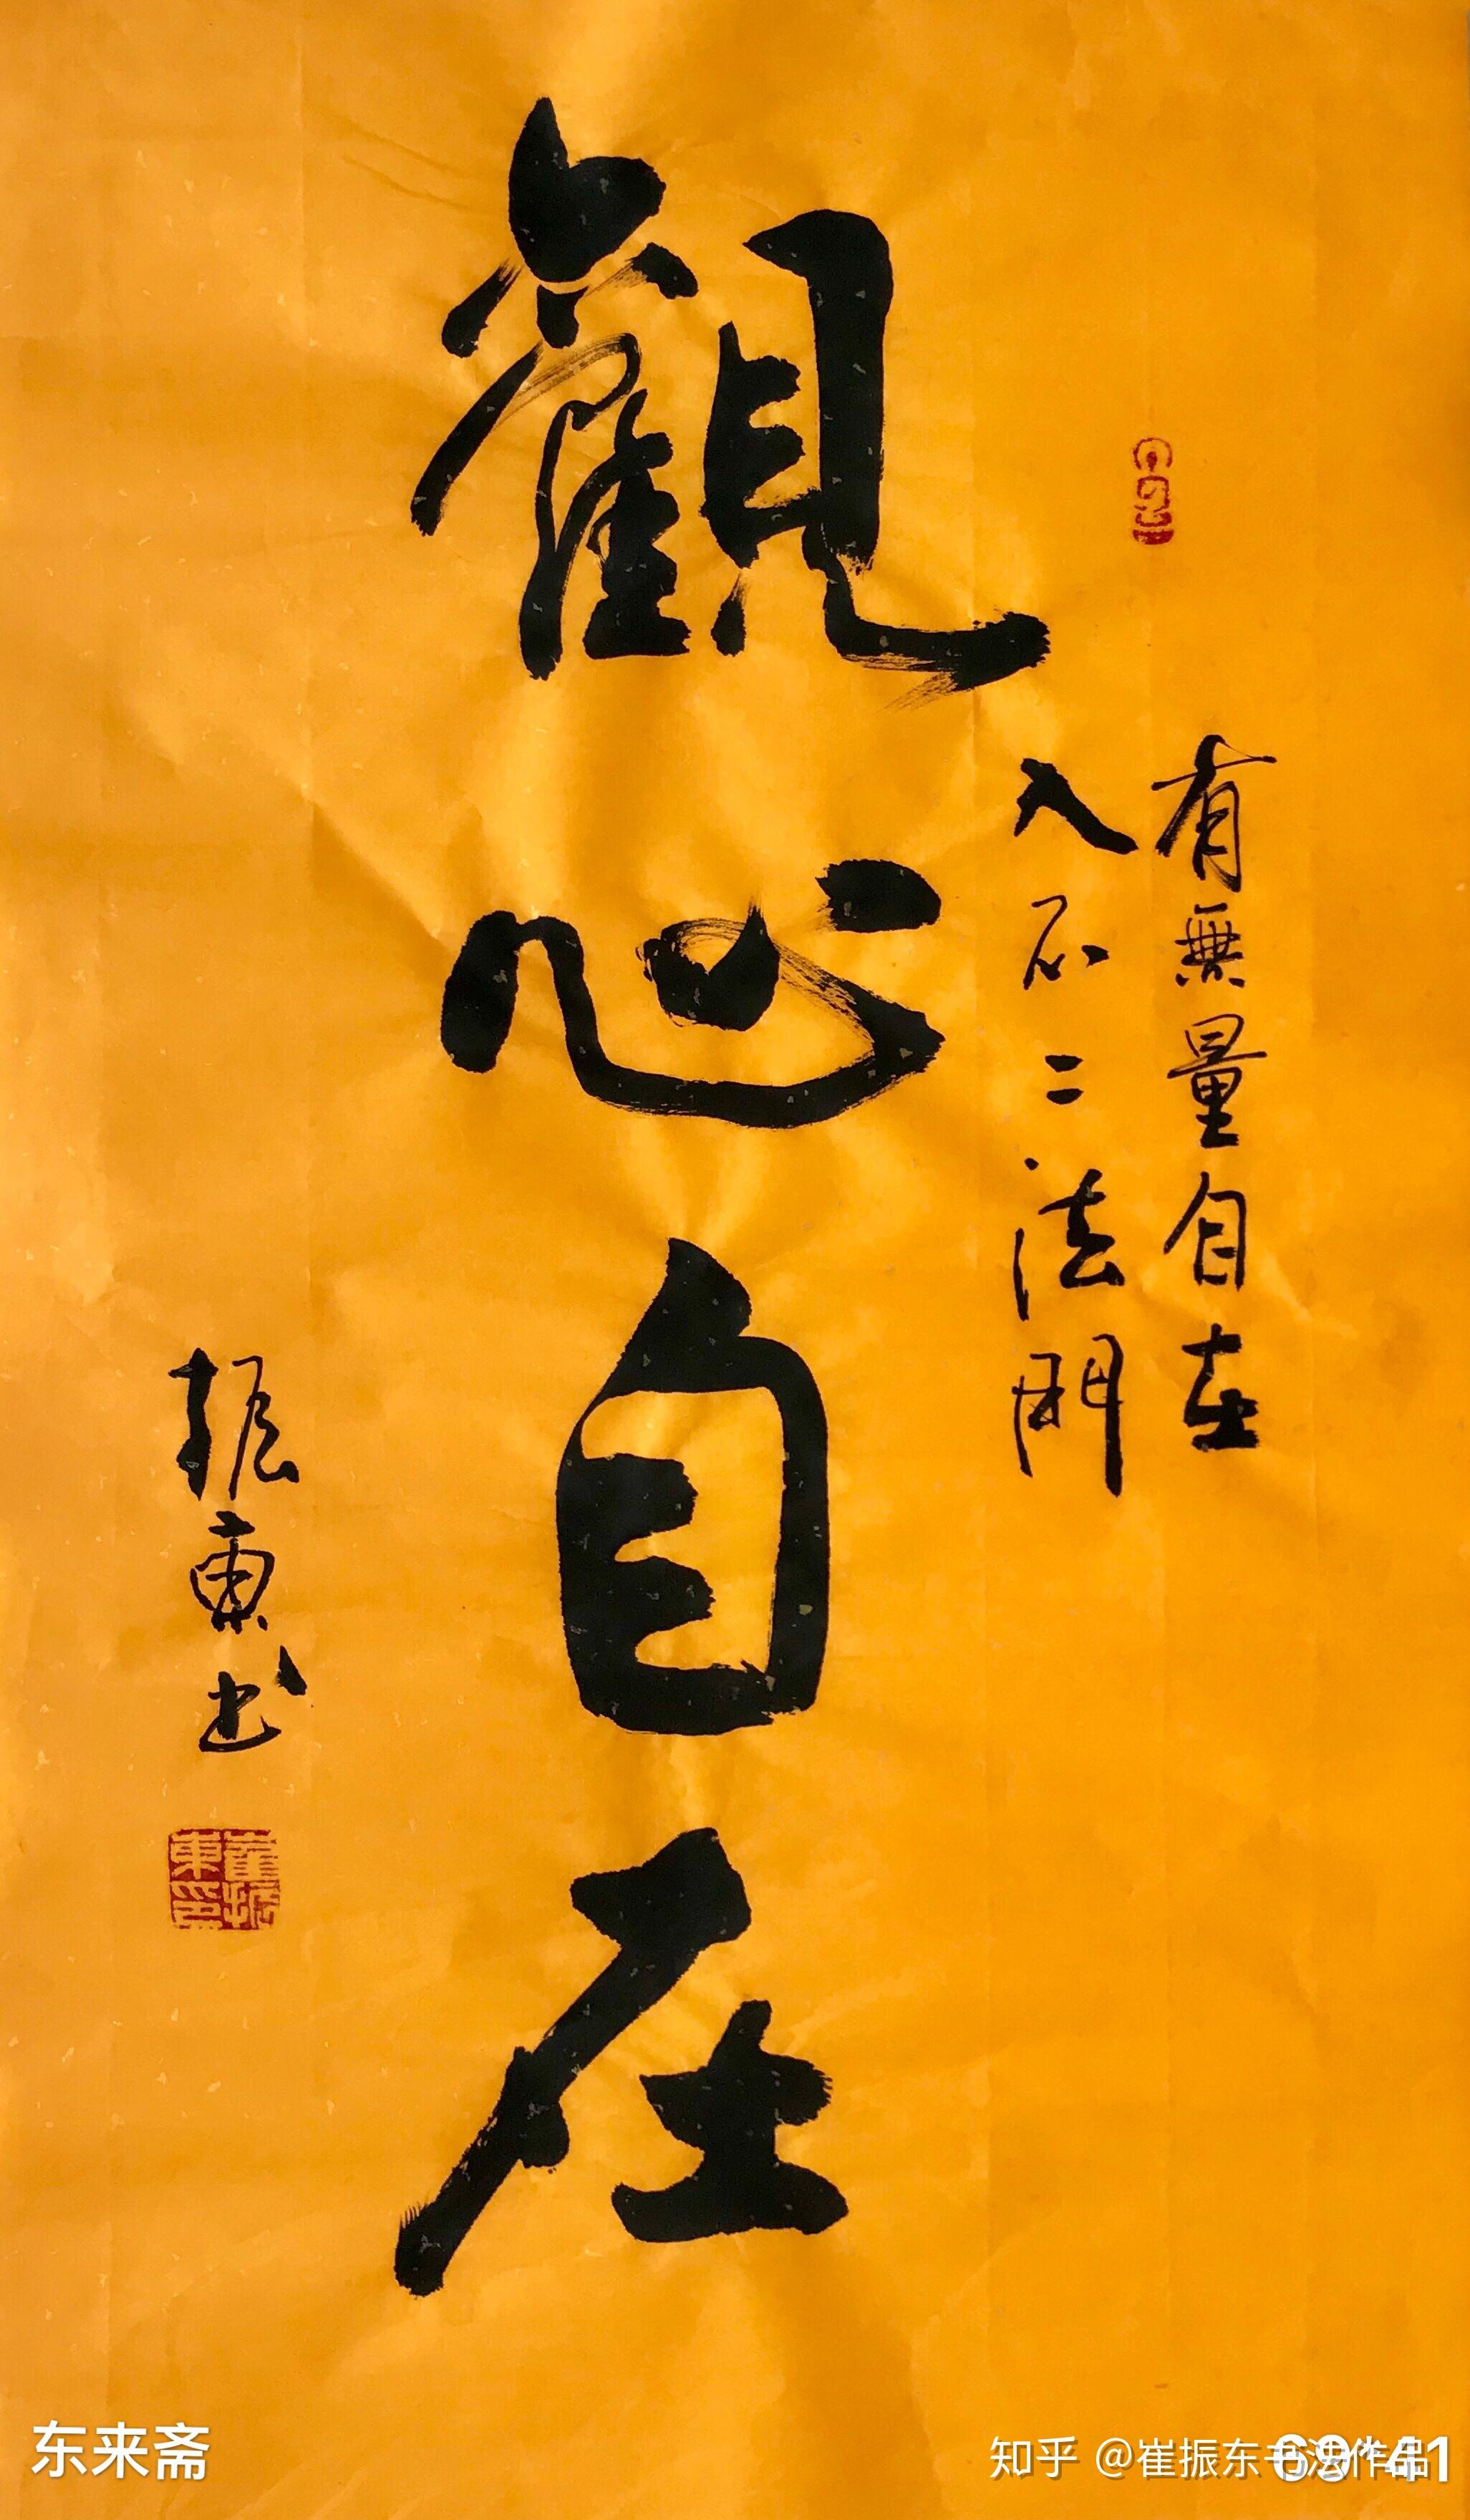 有無量自在
入不二法門
觀心自在
振東书
崔振東印
东来斋
知乎 @崔振东书法作品
69*41